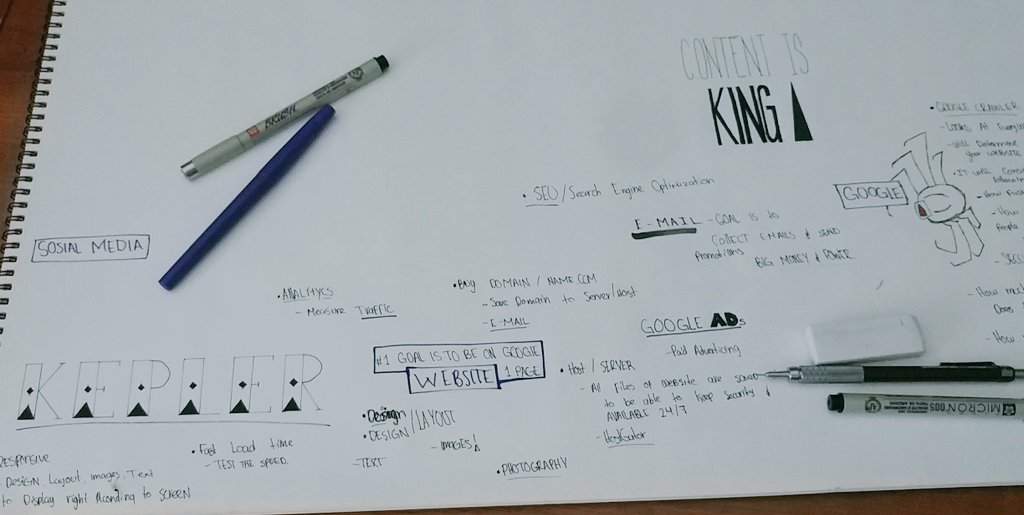 CONTENT IS
KING
• GOOGLE CRAWLER
- Looks At
- will Determine
your WEBSITE
• IT will
- How
- How
People
- How
Does
- How
GOOGLE
• SEO/Search Engine Optimization
E-MAIL - GOAL is to
COLLECT EMAILS & SEND
Promotions
BIG MONEY & POWER
SOSIAL MEDIA
BRUSH
• ANALMYCS
- Measure TRAFFIC
• Buy DOMAIN / NAME.COM
- Save Domain to Server/Host
- E-MAIL
GOOGLE ADs
- Paid Advertizing
#1 GOAL IS TO BE ON GOOGLE
1 PAGE
WEBSITE
• Host / SERVER
- All Files of website are saved
to be able to keep security &
AVAILABLE 24/7
- HostGator
MICRON 005
KEPLER
• Design
• DESIGN/LAYOUT
- IMAGES
- TEXT
• PHOTOGRAPHY
• Fast Load time
- TEST THE SPEED.
RESPONSIVE
- DESIGN, Layout, images, Text
to Display right According to SCREEN